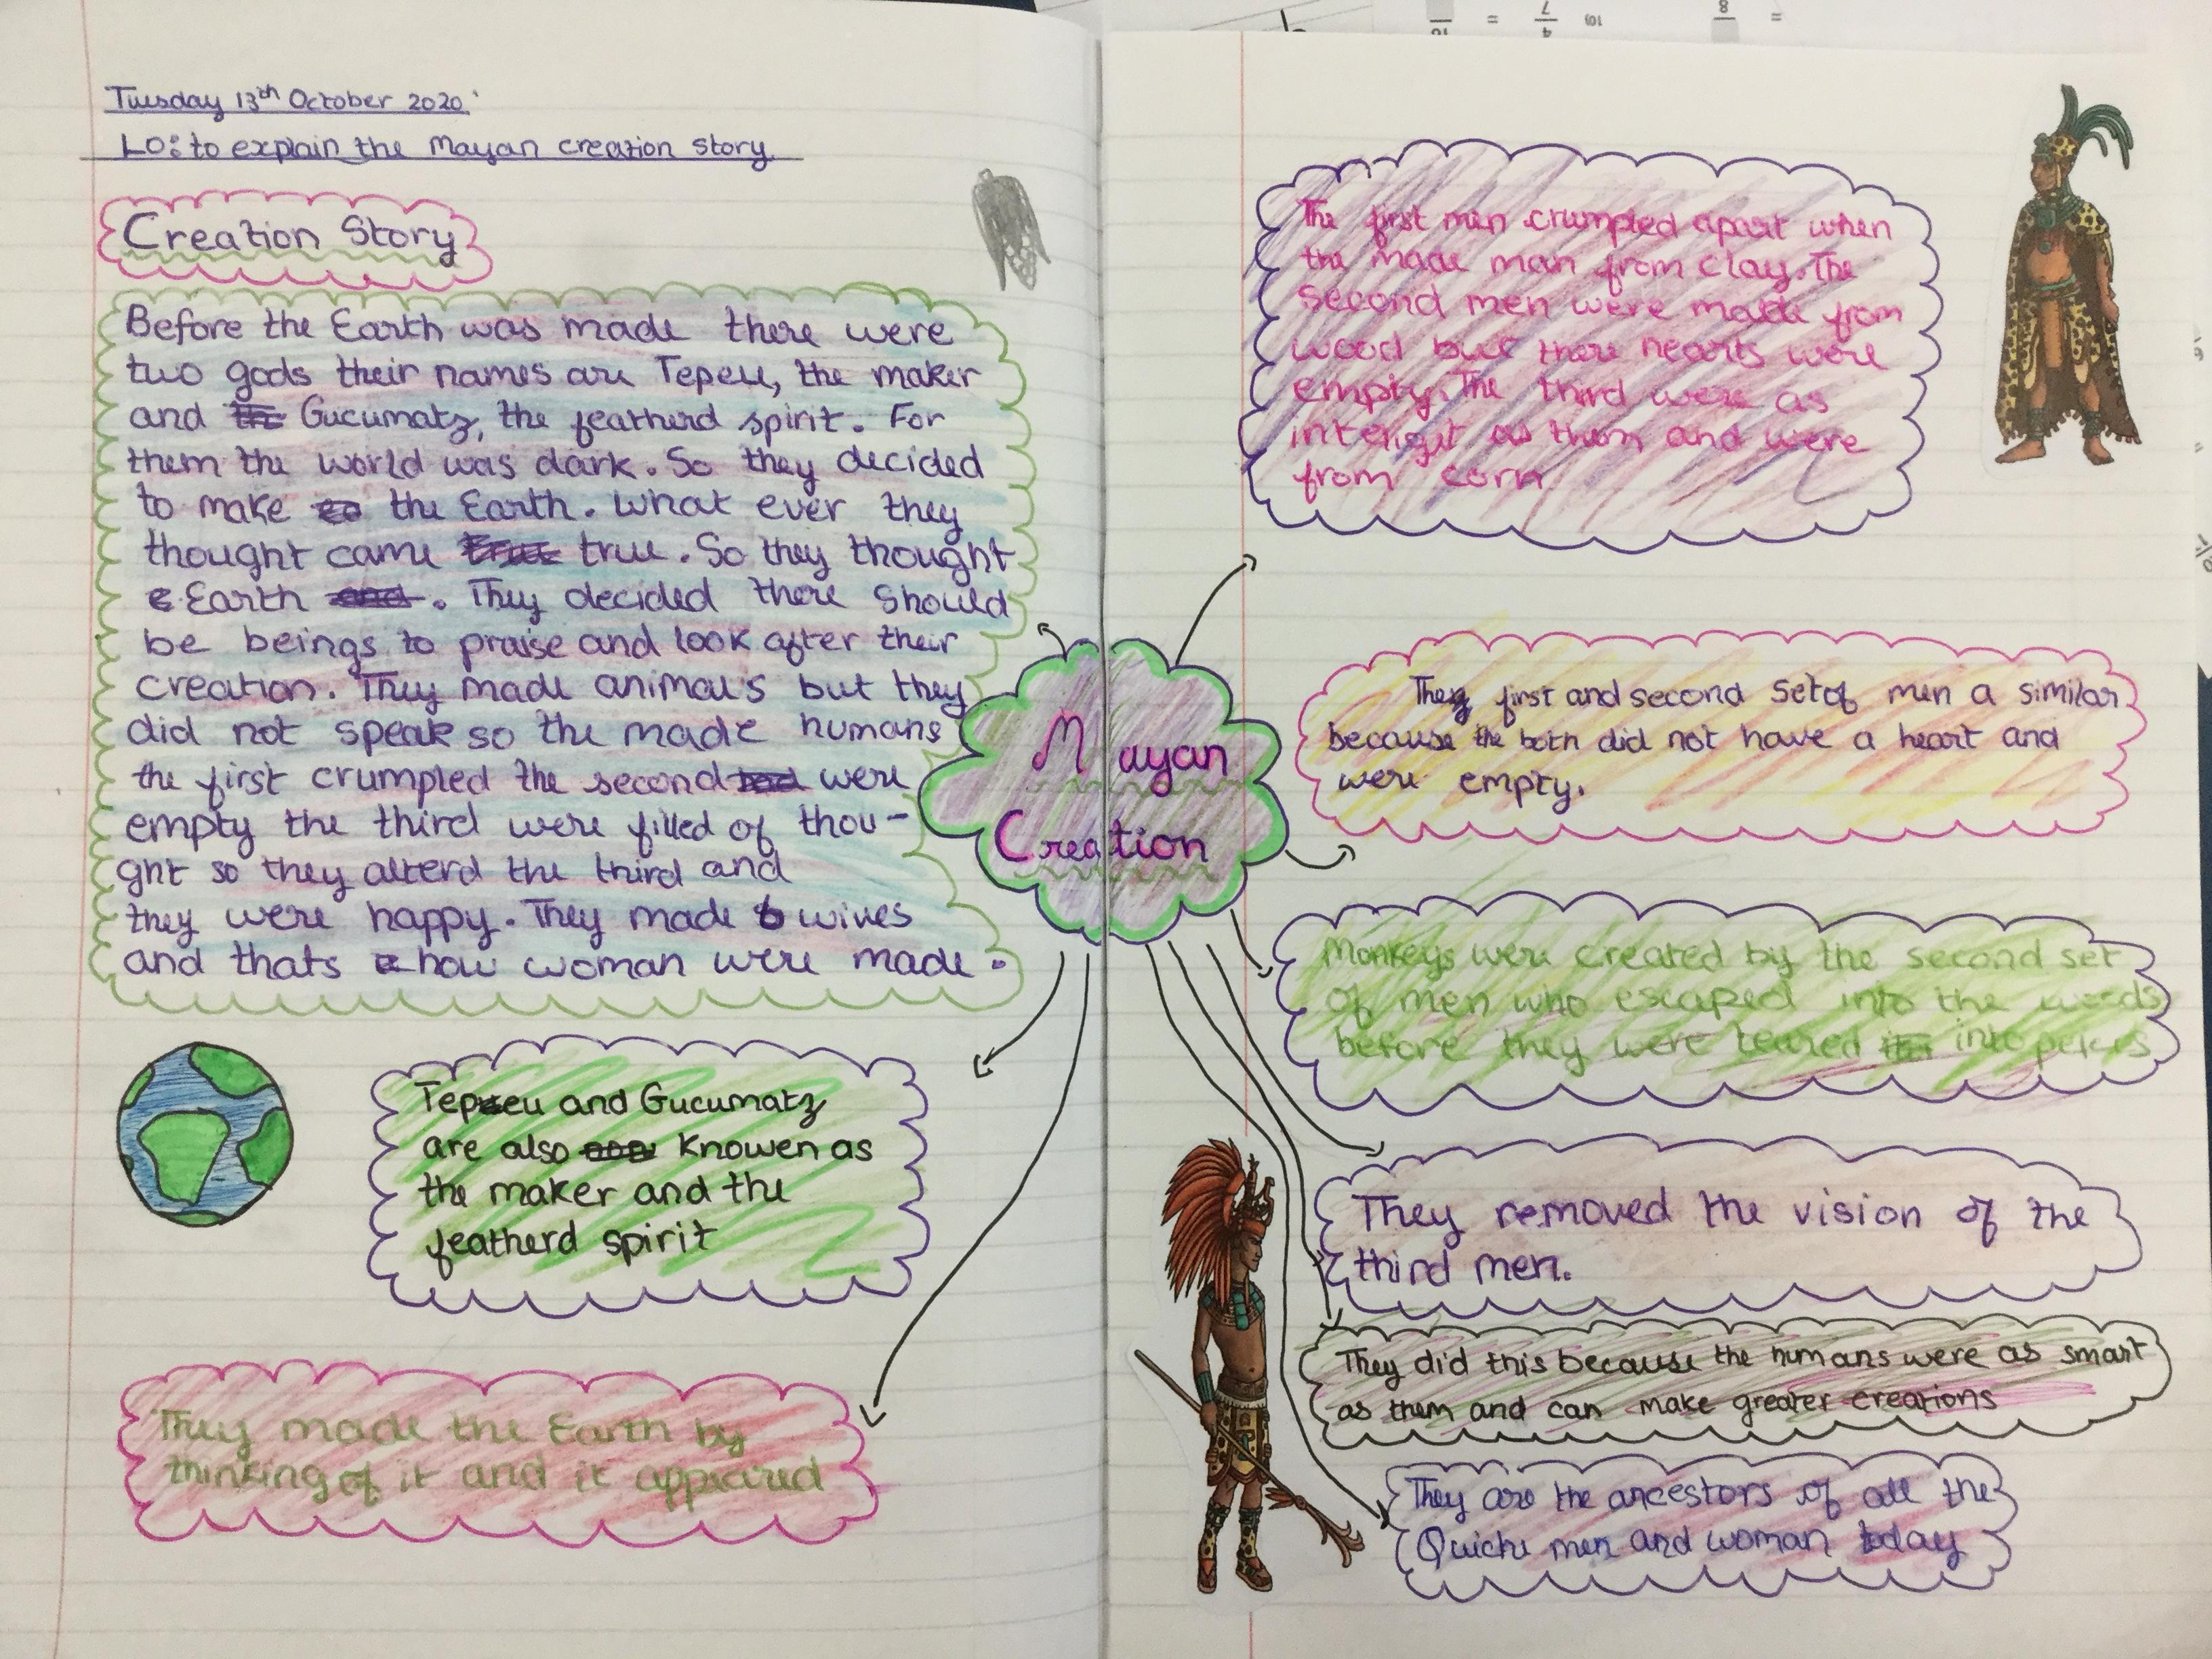 Tuesday 13th October 2020
LO: to explain the Mayan creation story
Creation Story
Before the Earth was made there were
two gods their names are Tepeu, the maker
and Gucumatz, the featherd spirit. For
them the world was dark. So they decided
to make the Earth. What ever they
thought came true. So they thought
Earth. They decided there should
be beings to praise and look after their
creation. They made animals but they
did not speak so the made humans
the first crumpled the second were
empty the third were filled of thou-
ght so they alterd the third and
they were happy. They made wives
and thats how woman were made.
Tepeu and Gucumatz
are also Knowen as
the maker and the
featherd spirit
They made the Earth by
thinking of it and it appeared
Mayan
Creation
The first men crumpled apart when
the made man from clay. The
second men were made from
wood but there hearts were
empty. The third were as
inteligt as them and were
from corn
They first and second set of men a similar
because the both did not have a heart and
were empty.
Monkeys were created by the second set
of men who escaped into the woods
before they were teared into peices
They removed the vision of the
third men.
They did this because the humans were as smart
as them and can make greater creations
They are the ancestors of all the
Quiche men and woman today